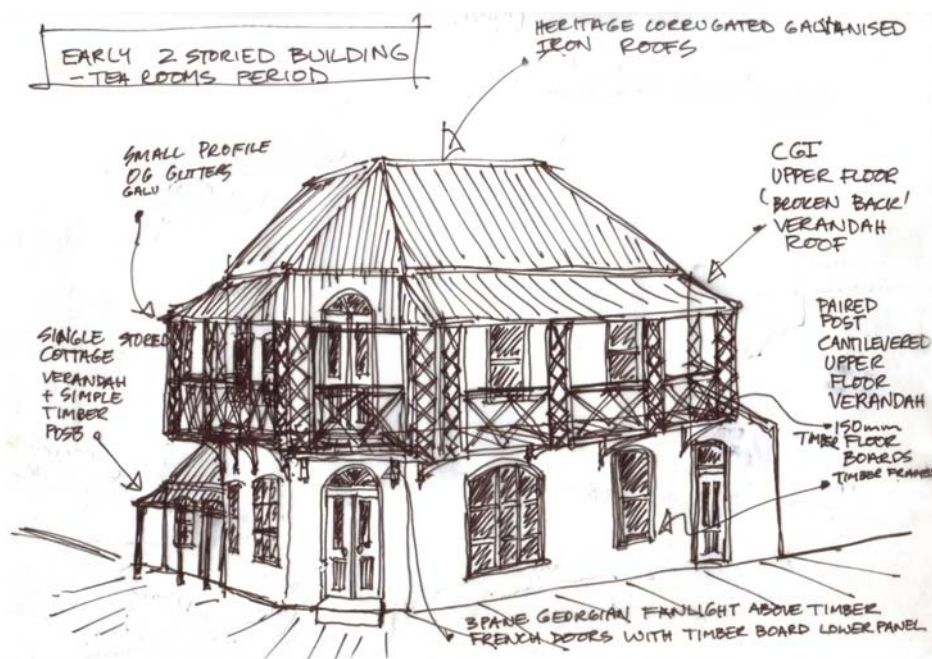 EARLY 2 STORIED BUILDING
- TEA ROOMS PERIOD
HERITAGE CORRUGATED GALVANISED
IRON ROOFS
SMALL PROFILE
OG GUTTERS
GALV
CGI
UPPER FLOOR
'BROKEN BACK'
VERANDAH
ROOF
SINGLE STORED
COTTAGE
VERANDAH
+ SIMPLE
TIMBER
POSTS
PAIRED
POST
CANTILEVERED
UPPER
FLOOR
VERANDAH
150mm
TIMBER FLOOR
BOARDS
TIMBER FRAMES
3 PANE GEORGIAN FANLIGHT ABOVE TIMBER
FRENCH DOORS WITH TIMBER BOARD LOWER PANEL